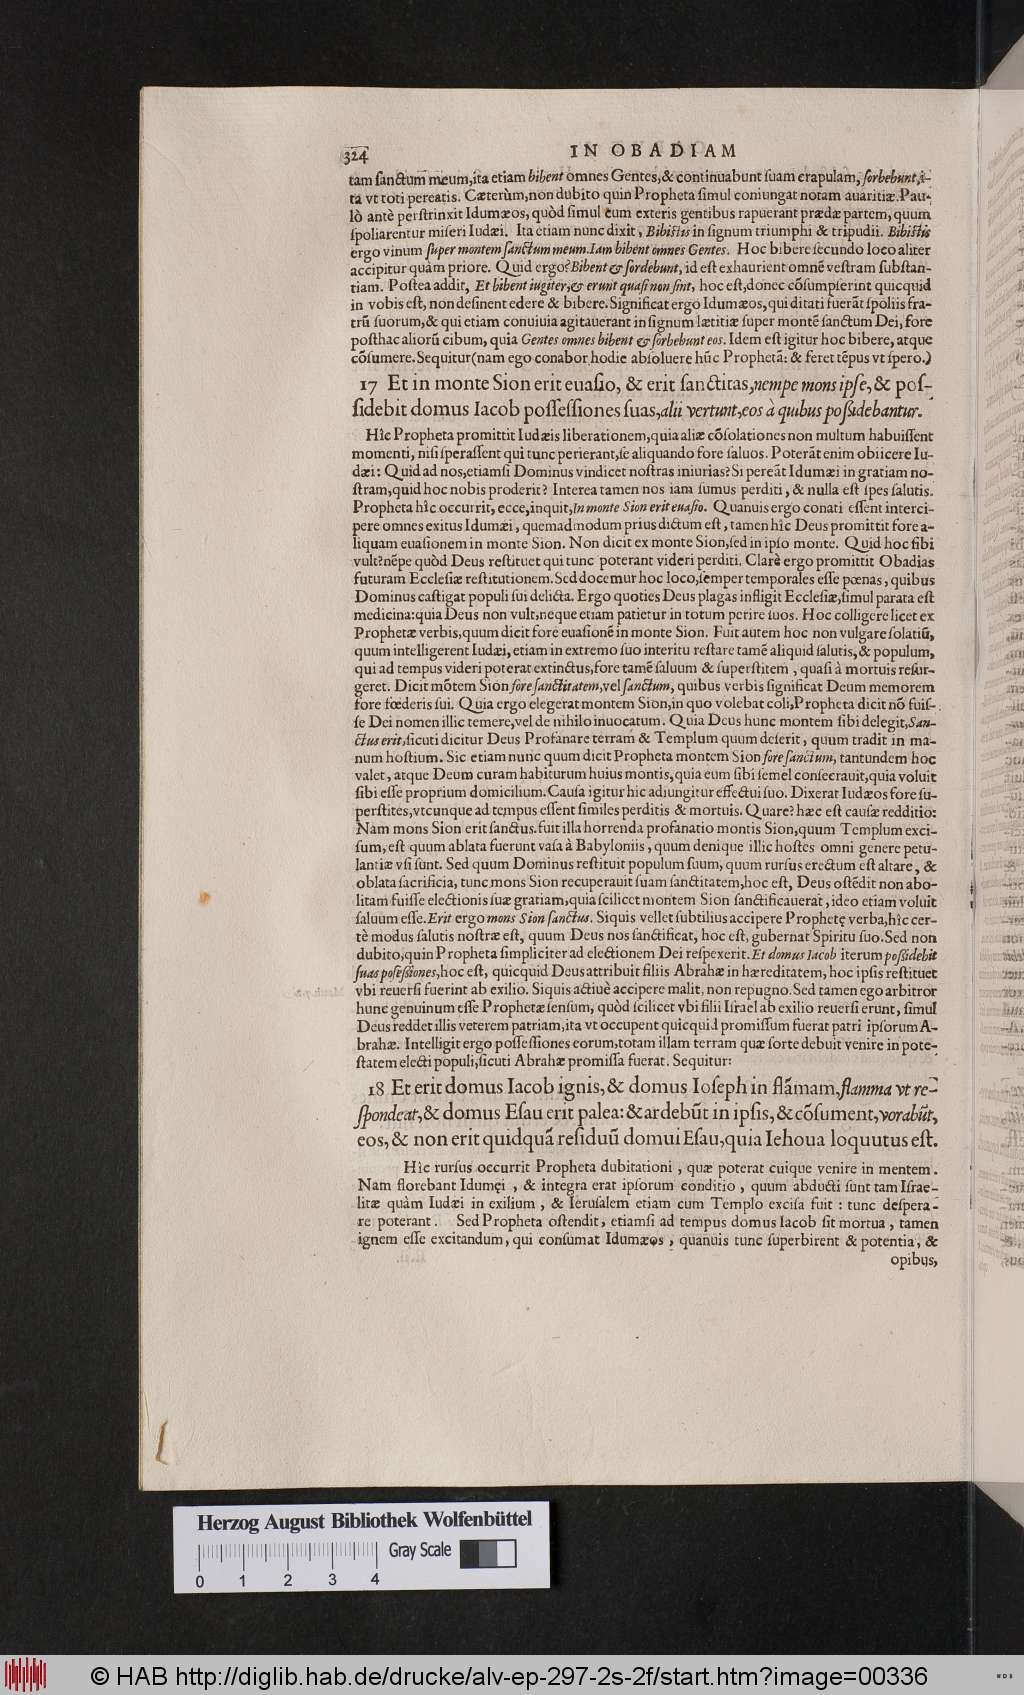 324 IN OBADIAM
tam ſanctum meum,ita etiam bibent omnes Gentes,& continuabunt ſuam crapulam, ſorbebunt,i-
ta vt toti pereatis. Cæterùm,non dubito quin Propheta ſimul coniungat notam auaritiæ. Pau-
lò antè perſtrinxit Idumæos, quòd ſimul cum exteris gentibus rapuerant prædæ partem, quum
ſpoliarentur miſeri Iudæi. Ita etiam nunc dixit, Bibiſtis in ſignum triumphi & tripudii. Bibiſtis
ergo vinum ſuper montem ſanctum meum. Iam bibent omnes Gentes. Hoc bibere ſecundo loco aliter
accipitur quàm priore. Quid ergo? Bibent & ſordebunt, id eſt exhaurient omnē veſtram ſubſtan-
tiam. Poſtea addit, Et bibent iugiter,& erunt quaſi non ſint, hoc eſt,donec cōſumpſerint quicquid
in vobis eſt, non deſinent edere & bibere. Significat ergo Idumæos,qui ditati fuerāt ſpoliis fra-
trū ſuorum,& qui etiam conuiuia agitauerant in ſignum lætitiæ ſuper montē ſanctum Dei, fore
poſthac aliorū cibum, quia Gentes omnes bibent & ſorbebunt eos. Idem eſt igitur hoc bibere, atque
cōſumere. Sequitur(nam ego conabor hodie abſoluere hūc Prophetā: & feret tēpus vt ſpero.)
17 Et in monte Sion erit euaſio, & erit ſanctitas,nempe mons ipſe,& poſ-
ſidebit domus Iacob poſſeſſiones ſuas,alii vertunt,eos à quibus poſsidebantur.
Hîc Propheta promittit Iudæis liberationem,quia aliæ cōſolationes non multum habuiſſent
momenti, niſi ſperaſſent qui tunc perierant,ſe aliquando fore ſaluos. Poterāt enim obiicere Iu-
dæi: Quid ad nos,etiamſi Dominus vindicet noſtras iniurias? Si pereāt Idumæi in gratiam no-
ſtram,quid hoc nobis proderit? Interea tamen nos iam ſumus perditi, & nulla eſt ſpes ſalutis.
Propheta hîc occurrit, ecce,inquit,In monte Sion erit euaſio. Quanuis ergo conati eſſent interci-
pere omnes exitus Idumæi, quemadmodum prius dictum eſt, tamen hîc Deus promittit fore a-
liquam euaſionem in monte Sion. Non dicit ex monte Sion,ſed in ipſo monte. Quid hoc ſibi
vult? nēpe quòd Deus reſtituet qui tunc poterant videri perditi. Clarè ergo promittit Obadias
futuram Eccleſiæ reſtitutionem. Sed docemur hoc loco,ſemper temporales eſſe pœnas, quibus
Dominus caſtigat populi ſui delicta. Ergo quoties Deus plagas infligit Eccleſiæ,ſimul parata eſt
medicina:quia Deus non vult,neque etiam patietur in totum perire ſuos. Hoc colligere licet ex
Prophetæ verbis,quum dicit fore euaſionē in monte Sion. Fuit autem hoc non vulgare ſolatiū,
quum intelligerent Iudæi, etiam in extremo ſuo interitu reſtare tamē aliquid ſalutis,& populum,
qui ad tempus videri poterat extinctus,fore tamē ſaluum & ſuperſtitem, quaſi à mortuis reſur-
geret. Dicit mōtem Sion fore ſanctitatem,vel ſanctum, quibus verbis ſignificat Deum memorem
fore fœderis ſui. Quia ergo elegerat montem Sion,in quo volebat coli,Propheta dicit nō fuiſ-
ſe Dei nomen illic temere,vel de nihilo inuocatum. Quia Deus hunc montem ſibi delegit,San-
ctus erit,ſicuti dicitur Deus Profanare terram & Templum quum deſerit, quum tradit in ma-
num hoſtium. Sic etiam nunc quum dicit Propheta montem Sion fore ſanctum, tantundem hoc
valet, atque Deum curam habiturum huius montis,quia eum ſibi ſemel conſecrauit,quia voluit
ſibi eſſe proprium domicilium. Cauſa igitur hic adiungitur effectui ſuo. Dixerat Iudæos fore ſu-
perſtites,vtcunque ad tempus eſſent ſimiles perditis & mortuis. Quare? hæc eſt cauſæ redditio:
Nam mons Sion erit ſanctus. fuit illa horrenda profanatio montis Sion,quum Templum exci-
ſum,eſt quum ablata fuerunt vaſa à Babyloniis, quum denique illic hoſtes omni genere petu-
lantiæ vſi ſunt. Sed quum Dominus reſtituit populum ſuum, quum rurſus erectum eſt altare, &
oblata ſacrificia, tunc mons Sion recuperauit ſuam ſanctitatem,hoc eſt, Deus oſtēdit non abo-
litam fuiſſe electionis ſuæ gratiam,quia ſcilicet montem Sion ſanctificauerat, ideo etiam voluit
ſaluum eſſe. Erit ergo mons Sion ſanctus. Siquis vellet ſubtilius accipere Prophetę verba,hîc cer-
tè modus ſalutis noſtræ eſt, quum Deus nos ſanctificat, hoc eſt, gubernat Spiritu ſuo. Sed non
dubito,quin Propheta ſimpliciter ad electionem Dei reſpexerit. Et domus Iacob iterum poſsidebit
ſuas poſeſsiones,hoc eſt, quicquid Deus attribuit filiis Abrahæ in hæreditatem, hoc ipſis reſtituet
vbi reuerſi fuerint ab exilio. Siquis actiuè accipere malit, non repugno. Sed tamen ego arbitror
hunc genuinum eſſe Prophetæ ſenſum, quòd ſcilicet vbi filii Iſrael ab exilio reuerſi erunt, ſimul
Deus reddet illis veterem patriam,ita vt occupent quicquid promiſſum fuerat patri ipſorum A-
brahæ. Intelligit ergo poſſeſſiones eorum,totam illam terram quæ ſorte debuit venire in pote-
ſtatem electi populi,ſicuti Abrahæ promiſſa fuerat. Sequitur:
18 Et erit domus Iacob ignis,& domus Ioſeph in flāmam,flamma vt re-
ſpondeat,& domus Eſau erit palea:& ardebūt in ipſis,& cōſument,vorabūt,
eos,& non erit quidquā reſiduū domui Eſau,quia Iehoua loquutus eſt.
Hîc rurſus occurrit Propheta dubitationi, quæ poterat cuique venire in mentem.
Nam florebant Idumęi, & integra erat ipſorum conditio, quum abducti ſunt tam Iſrae-
litæ quàm Iudæi in exilium, & Ieruſalem etiam cum Templo exciſa fuit: tunc deſpera-
re poterant. Sed Propheta oſtendit, etiamſi ad tempus domus Iacob ſit mortua, tamen
ignem eſſe excitandum, qui conſumat Idumæos, quanuis tunc ſuperbirent & potentia, &
opibus,
Herzog August Bibliothek Wolfenbüttel
Gray Scale
0 1 2 3 4
© HAB http://diglib.hab.de/drucke/alv-ep-297-2s-2f/start.htm?image=00336